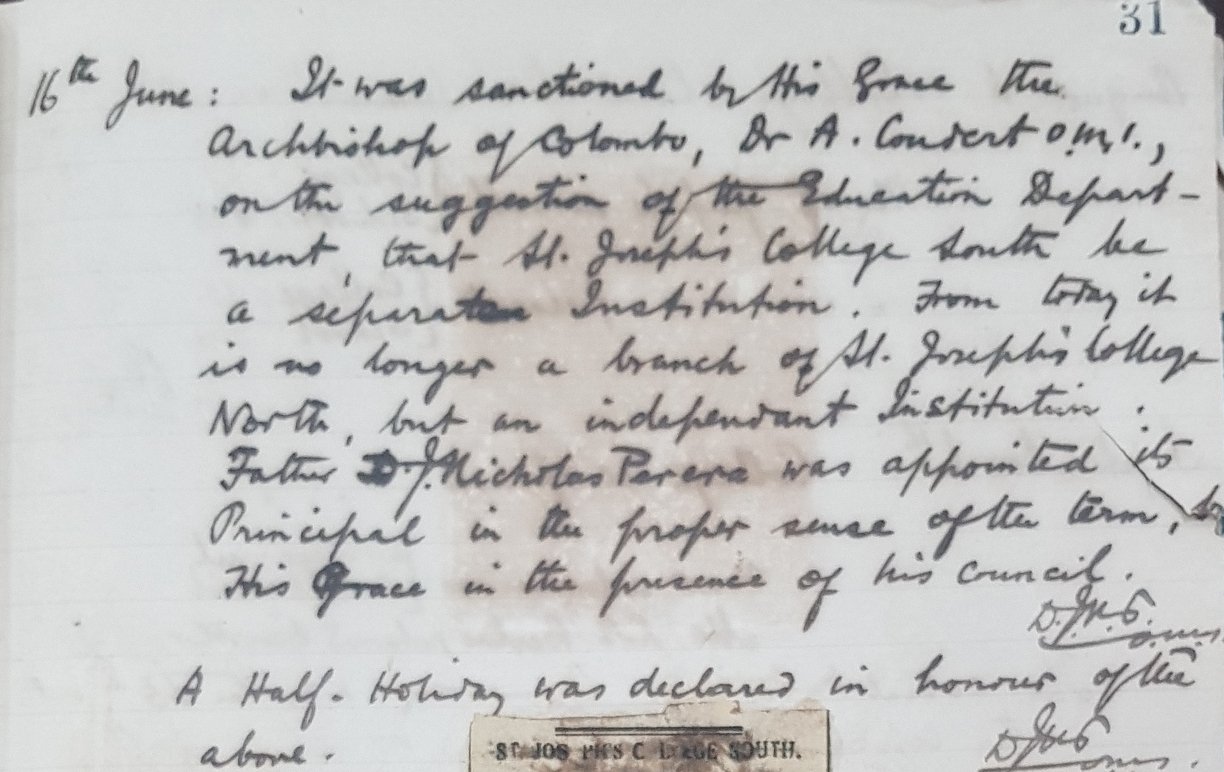 31
16th June : It was sanctioned by His Grace the
Archbishop of Colombo, Dr A. Coudert O.M.I.,
on the suggestion of the Education Depart-
ment, that St. Joseph's College South be
a separate Institution. From today it
is no longer a branch of St. Joseph's College
North, but an independant Institution.
Father D.J. Nicholas Perera was appointed its
Principal in the proper sense of the term, by
His Grace in the presence of his council.
D.J.N.P.
o.m.i.
A Half-Holiday was declared in honour of the
above.
D.J.N.P.
o.m.i.
ST. JOS PH'S C L EGE SOUTH.